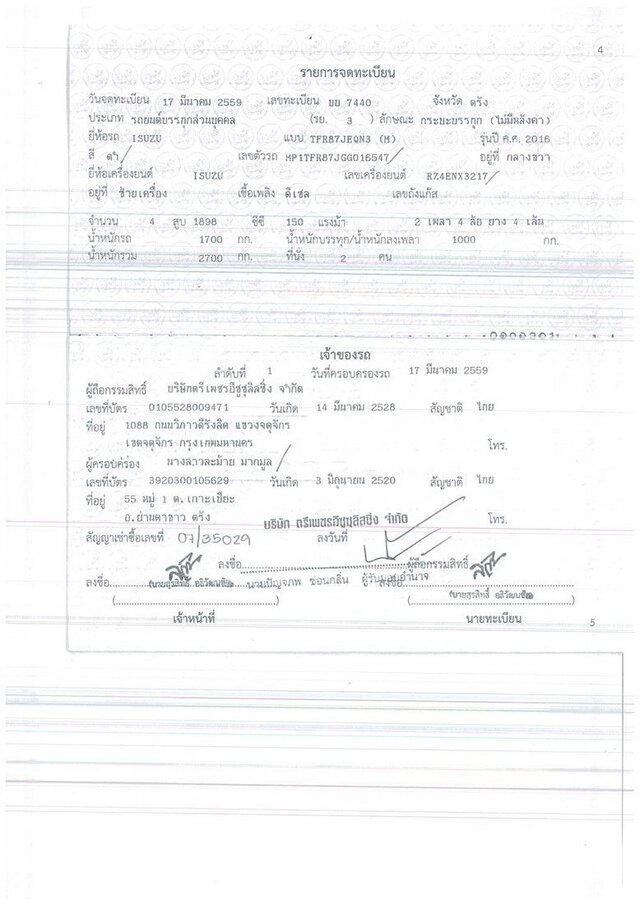 4
รายการจดทะเบียน
วันจดทะเบียน 17 มีนาคม 2559 เลขทะเบียน บบ 7440 จังหวัด ตรัง
ประเภท รถยนต์บรรทุกส่วนบุคคล (รย. 3 ) ลักษณะ กระบะบรรทุก (ไม่มีหลังคา)
ยี่ห้อรถ ISUZU แบบ TFR87JEQN3 (M) รุ่นปี ค.ศ. 2016
สี ดำ เลขตัวรถ MP1TFR87JGG016547 อยู่ที่ กลางขวา
ยี่ห้อเครื่องยนต์ ISUZU เลขเครื่องยนต์ RZ4ENX3217
อยู่ที่ ซ้ายเครื่อง เชื้อเพลิง ดีเซล เลขถังแก๊ส
จำนวน 4 สูบ 1898 ซีซี 150 แรงม้า 2 เพลา 4 ล้อ ยาง 4 เส้น
น้ำหนักรถ 1700 กก. น้ำหนักบรรทุก/น้ำหนักลงเพลา 1000 กก.
น้ำหนักรวม 2700 กก. ที่นั่ง 2 คน
เจ้าของรถ
ลำดับที่ 1 วันที่ครอบครองรถ 17 มีนาคม 2559
ผู้ถือกรรมสิทธิ์ บริษัทตรีเพชรอีซูซุลิสซิ่ง จำกัด
เลขที่บัตร 0105528009471 วันเกิด 14 มีนาคม 2528 สัญชาติ ไทย
ที่อยู่ 1088 ถนนวิภาวดีรังสิต แขวงจตุจักร
เขตจตุจักร กรุงเทพมหานคร โทร.
ผู้ครอบครอง นางสาวละม้าย มากมูล
เลขที่บัตร 3920300105629 วันเกิด 3 มิถุนายน 2520 สัญชาติ ไทย
ที่อยู่ 55 หมู่ 1 ต.เกาะเปียะ
อ.ย่านตาขาว ตรัง บริษัท ตรีเพชรอีซูซุลิสซิ่ง จำกัด โทร.
สัญญาเช่าซื้อเลขที่ 07/35029 ลงวันที่
ลงชื่อ ผู้ถือกรรมสิทธิ์
ลงชื่อ (นายสุรสิทธิ์ อธิวัฒนชัย) นายปัญจภพ ซ่อนกลิ่น ผู้รับมอบอำนาจ
(นายสุรสิทธิ์ อธิวัฒนชัย)
เจ้าหน้าที่ นายทะเบียน 5